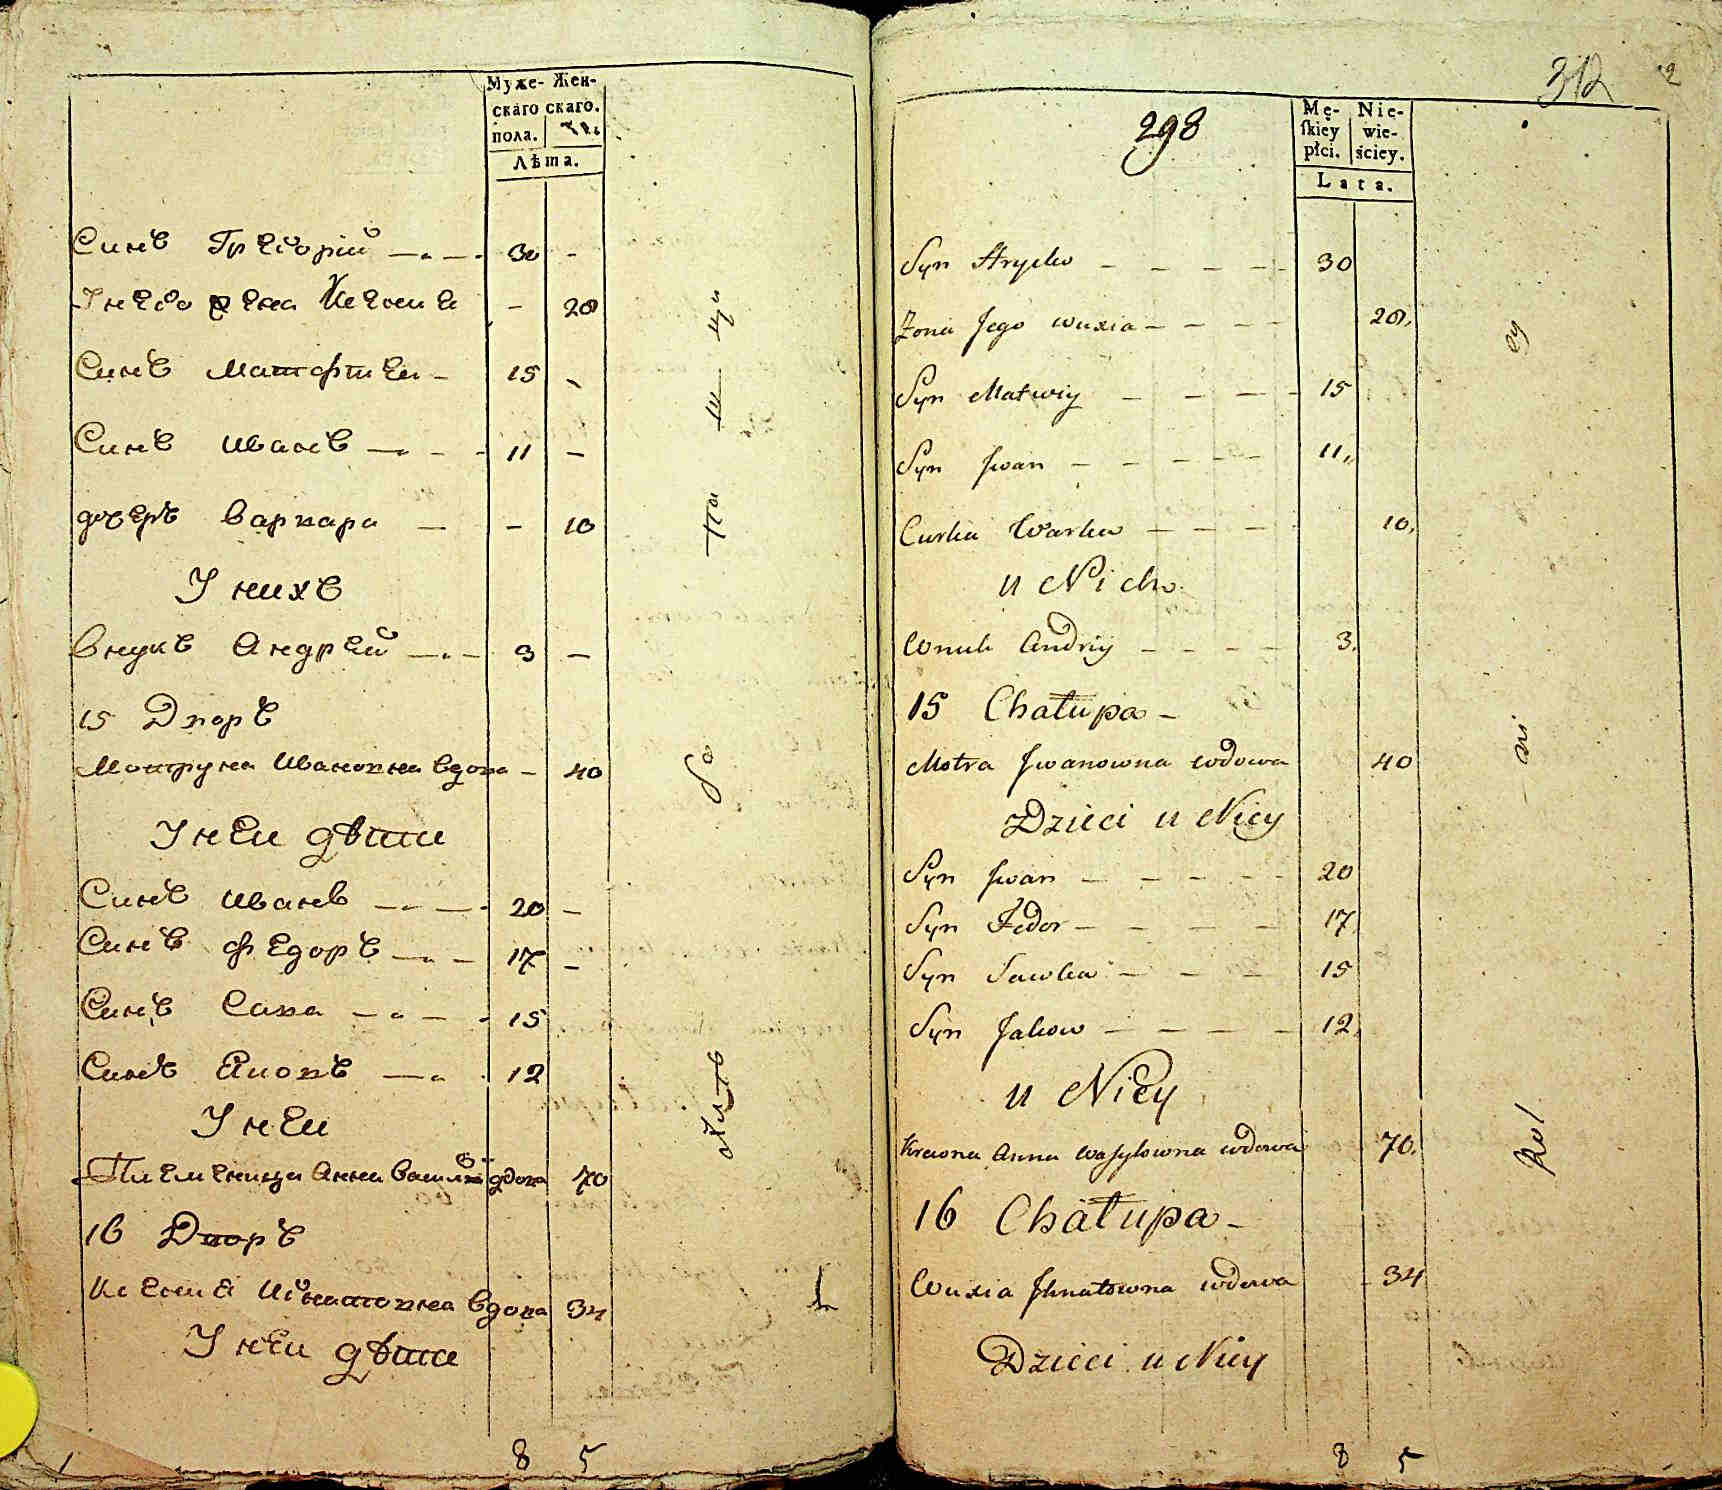 Муже- Жен-
скаго скаго.
пола.
Лѣта.
Синъ Григорій 30 -
У него жена Ксения - 28
Синъ Матфтеи - 15 -
Синъ Иванъ 11 -
дочеръ варвара - 10
У нихъ
внукъ Андрей 3 -
15 Дворъ
Матруна Ивановна вдова - 40
У неи дѣти
Синъ Иванъ 20 -
Синъ Федоръ 17 -
Синъ Сава 15
Синъ Яковъ 12
У неи
Племеница Анна вдова 70
16 Дворъ
Ксения Игнатовна вдова 34
У неи дѣти
8 5
312 2
298
Mę- Nie-
skiey wie-
płci. ściey.
Lata.
Syn Hryćko - - - - - 30
Żona Jego wuxia - - - - 28.
Syn Matwiy - - - - 15
Syn Jwan - - - - - 11.
Curka Warka - - - 10.
u Nich
Wnuk Andriy - - - - 3.
15 Chałupa -
Motra Jwanowna wdowa 40
Dzieci u Niey
Syn Jwan - - - - - 20
Syn Fedor - - - - 17.
Syn Sawka - - - 15
Syn Jakow - - - - 12.
u Niey
Krewna Anna Wasylowna wdowa 70.
16 Chałupa -
Wuxia Jhnatowna wdowa - 34
Dzieci u Niey
8 5